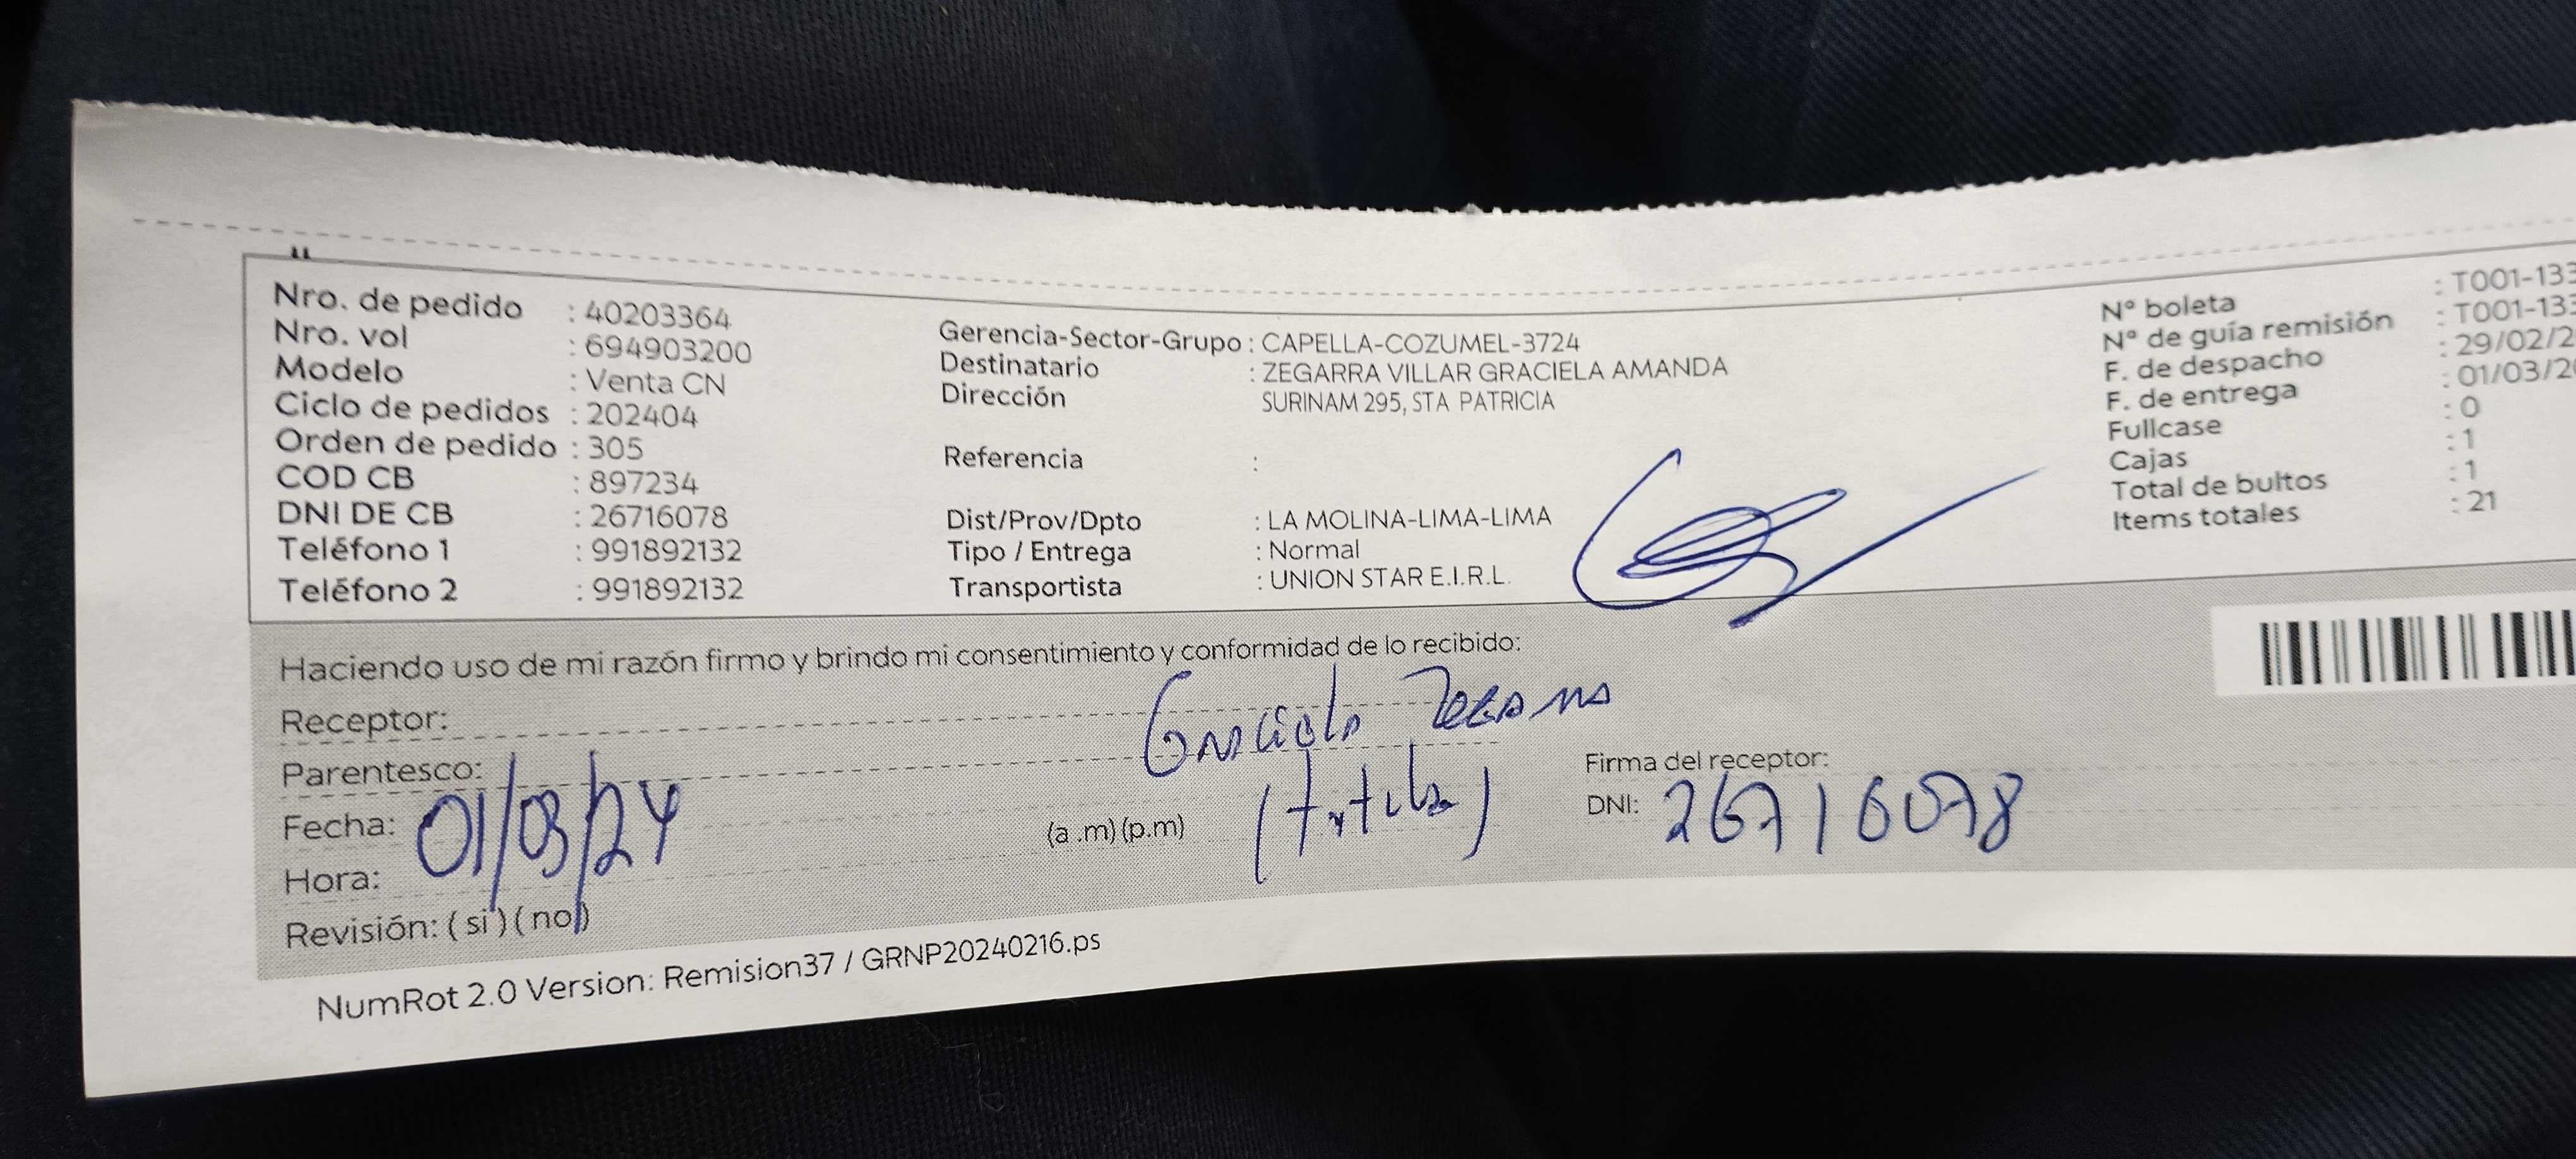 Nro. de pedido : 40203364
Nro. vol : 694903200
Modelo : Venta CN
Ciclo de pedidos : 202404
Orden de pedido : 305
COD CB : 897234
DNI DE CB : 26716078
Teléfono 1 : 991892132
Teléfono 2 : 991892132
Gerencia-Sector-Grupo : CAPELLA-COZUMEL-3724
Destinatario : ZEGARRA VILLAR GRACIELA AMANDA
Dirección SURINAM 295, STA PATRICIA
Referencia :
Dist/Prov/Dpto : LA MOLINA-LIMA-LIMA
Tipo / Entrega : Normal
Transportista : UNION STAR E.I.R.L.
N° boleta : T001-133
N° de guía remisión : T001-133
F. de despacho : 29/02/2
F. de entrega : 01/03/20
Fullcase : 0
Cajas : 1
Total de bultos : 1
Items totales : 21
Haciendo uso de mi razón firmo y brindo mi consentimiento y conformidad de lo recibido:
Receptor: Graciela
Parentesco:
Fecha: 01/03/24
Hora: (a .m) (p.m)
Revisión: ( si ) ( no )
Firma del receptor:
DNI: 26716078
NumRot 2.0 Version: Remision37 / GRNP20240216.ps